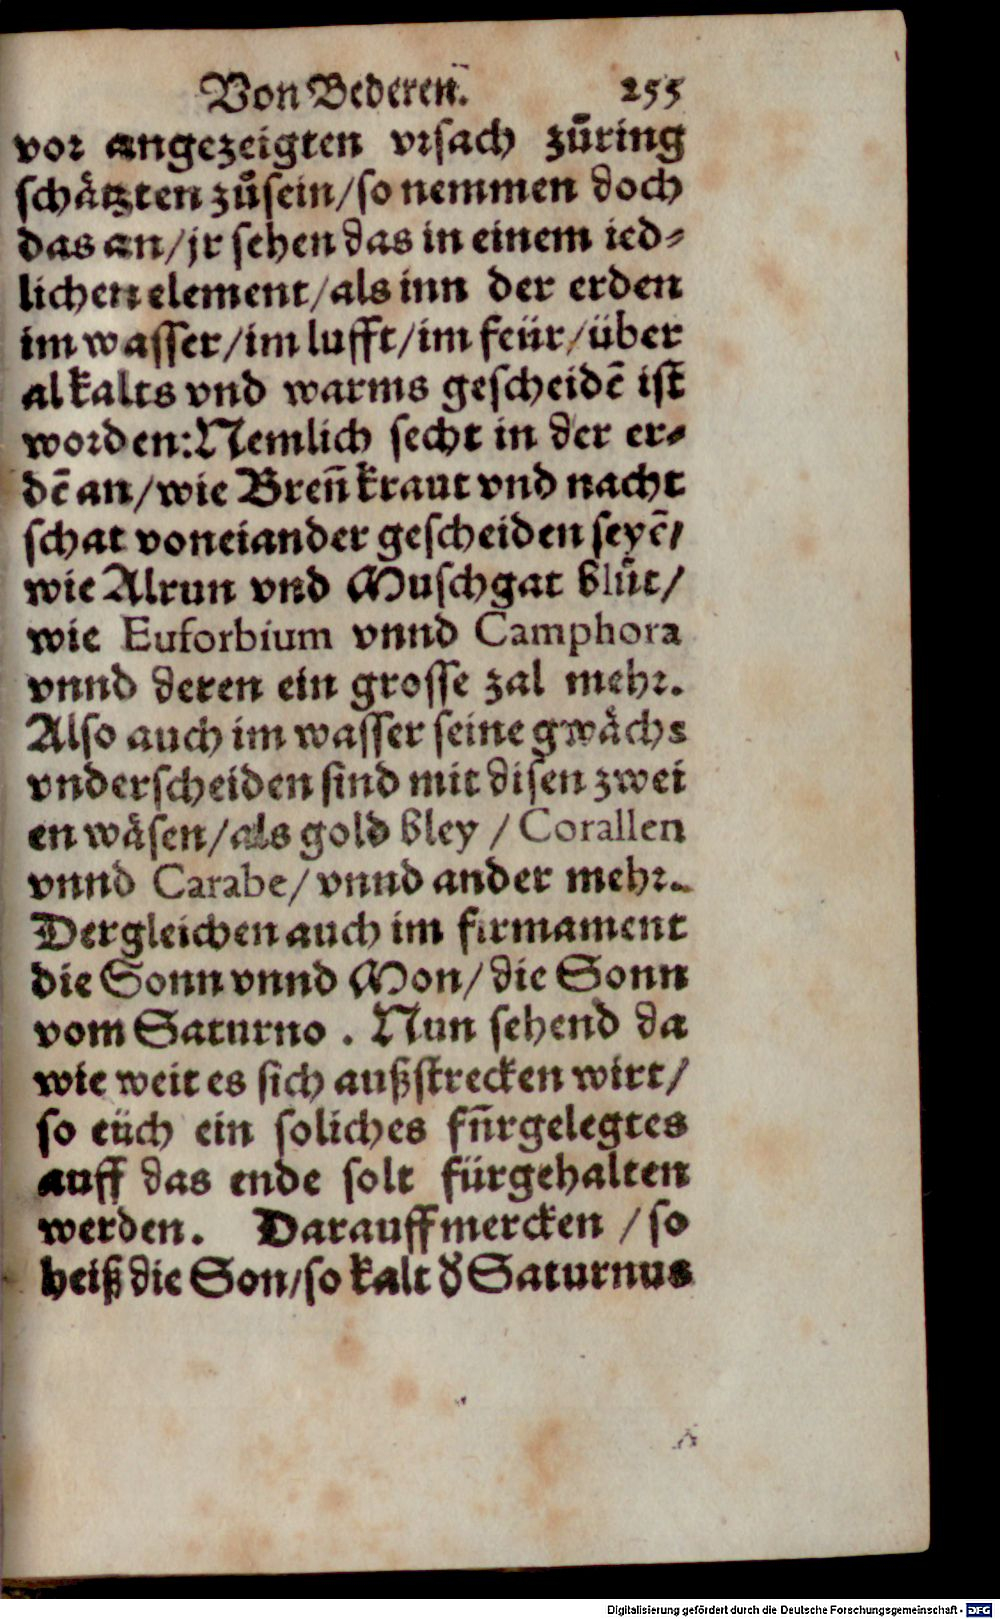 Von Bederen. 255
vor angezeigten vrsach zůring
schåtzten zůsein/so nemmen doch
das an/jr sehen das in einem ied⸗
lichen element/als inn der erden
im wasser/im lufft/im feür/über
al kalts vnd warms gescheidē ist
worden: Nemlich secht in der er⸗
dē an/wie Breñkraut vnd nacht
schat voneiander gescheiden seyē/
wie Alrun vnd Muschgat blůt/
wie Euforbium vnnd Camphora
vnnd deren ein grosse zal mehr.
Also auch im wasser seine gwåchs
vnderscheiden sind mit disen zwei
en wåsen/als gold bley / Corallen
vnnd Carabe/vnnd ander mehr.
Dergleichen auch im firmament
die Sonn vnnd Mon/die Sonn
vom Saturno. Nun sehend da
wie weit es sich außstrecken wirt/
so eüch ein soliches fürgelegtes
auff das ende solt fürgehalten
werden. Darauff mercken /so
heiß die Son/so kalt d̕ Saturnus
Digitalisierung gefördert durch die Deutsche Forschungsgemeinschaft - DFG